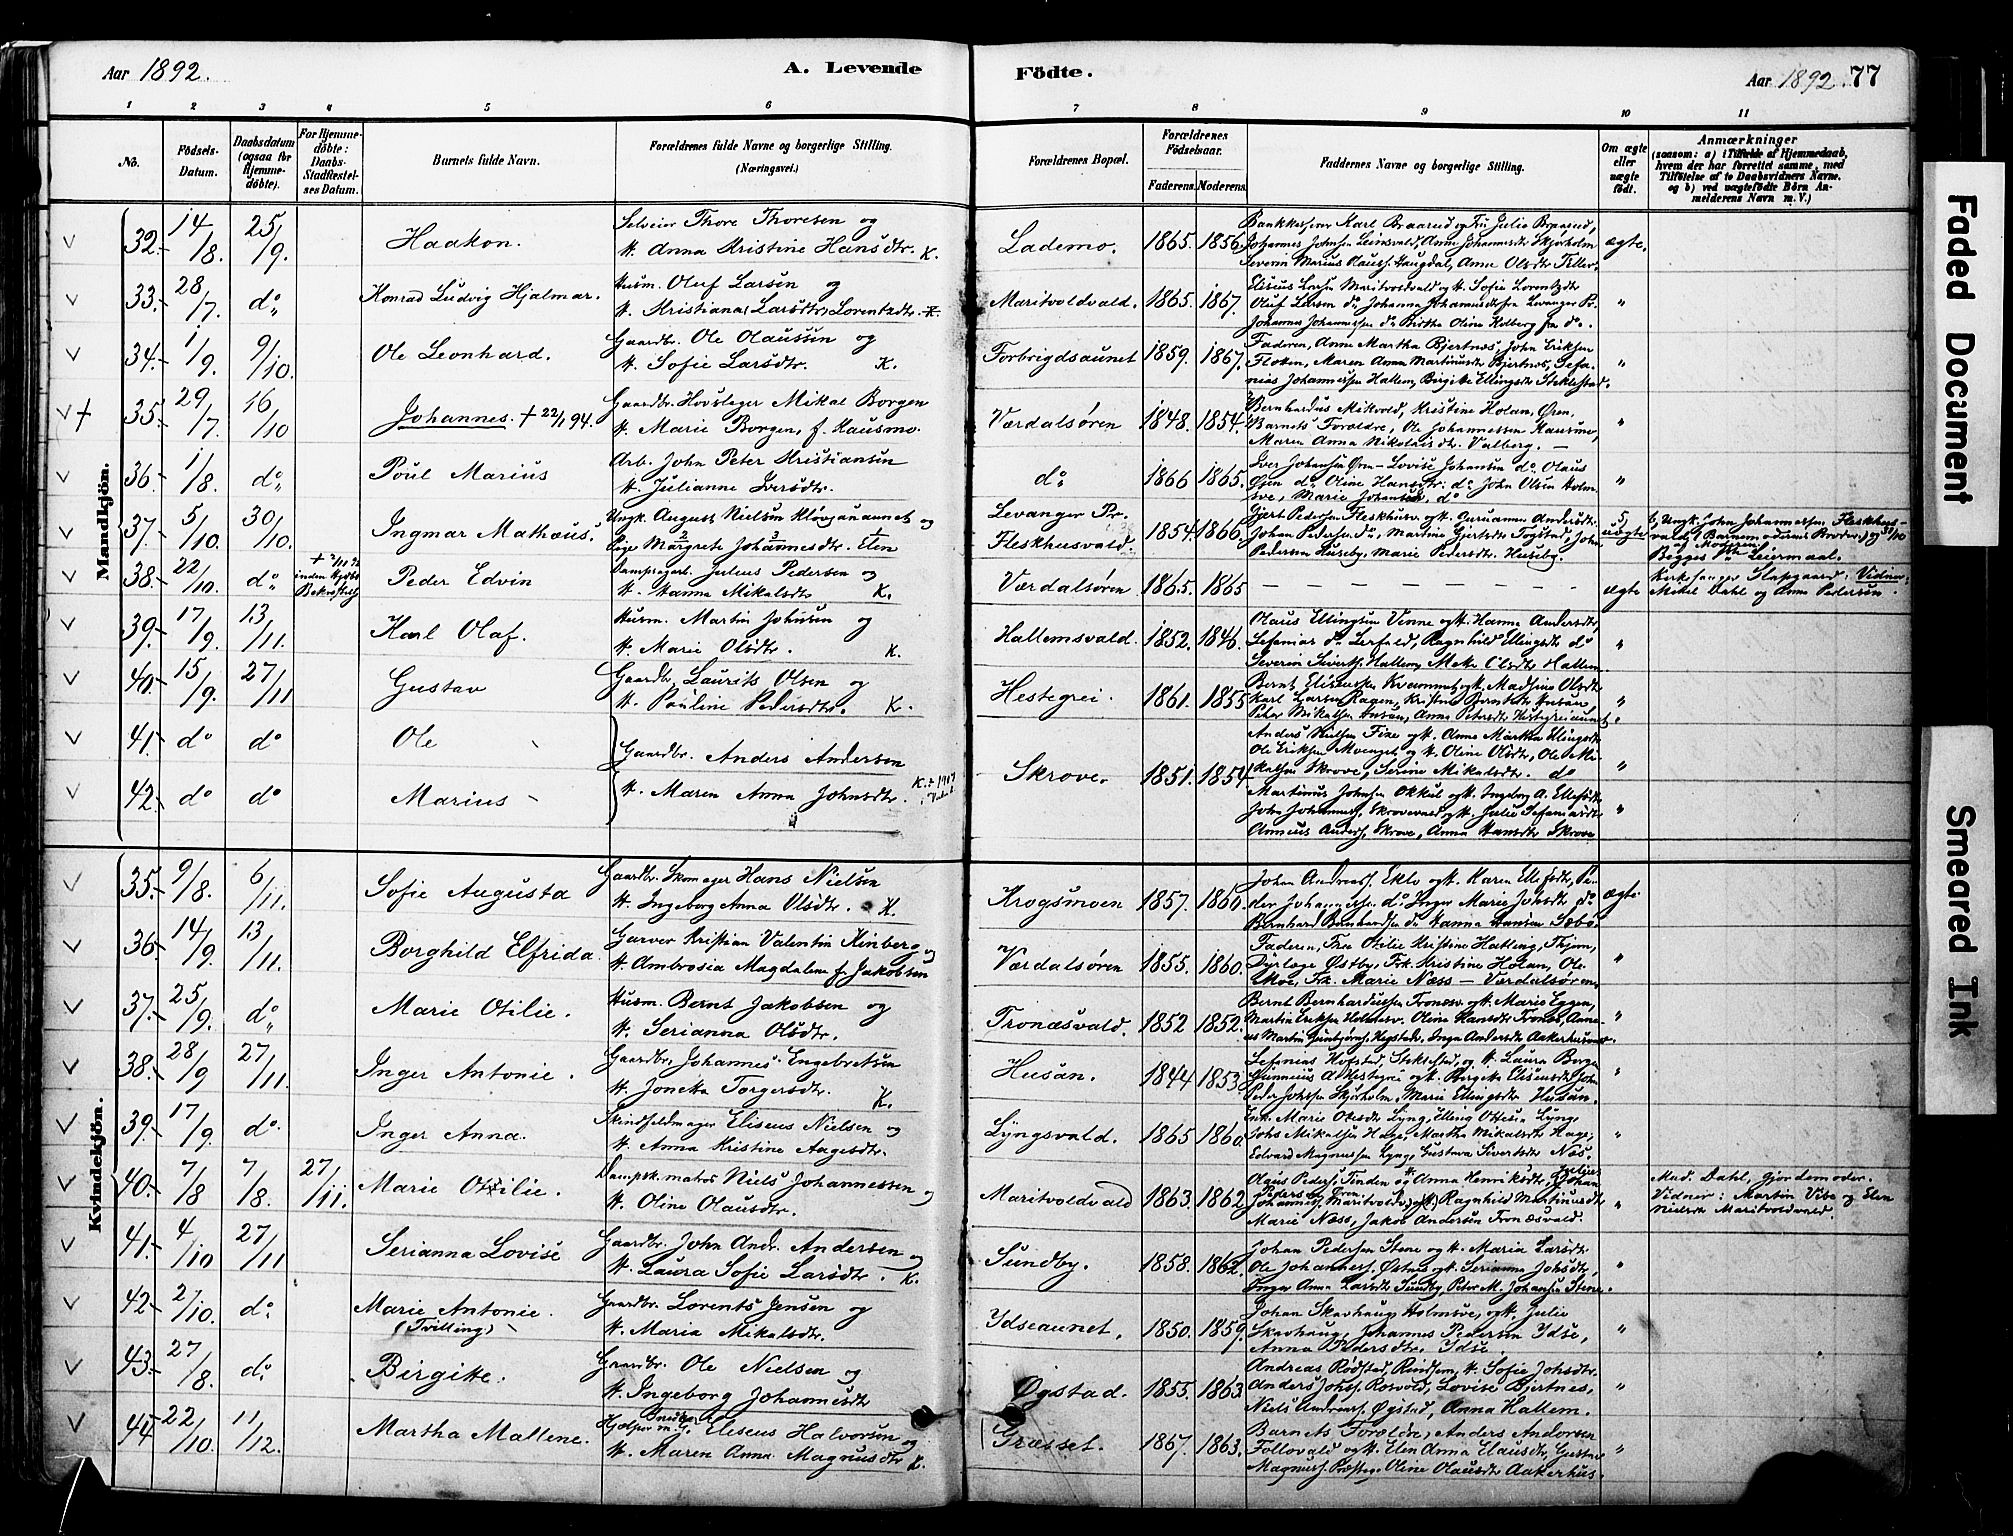 Aar 1892.
A. Levende
Födte.
Aar 1892. 77
1 2 3 4 5 6 7 8 9 10 11
No.
Födsels-Datum.
Daabsdatum (ogsaa for Hjemmedöbte).
For Hjemmedöbte: Daabs-Stadfæstelses Datum.
Barnets fulde Navn.
Forældrenes fulde Navne og borgerlige Stilling. (Næringsvei.)
Forældrenes Bopæl.
Forældrenes Födselsaar.
Faderens. Moderens.
Faddernes Navne og borgerlige Stilling.
Om ægte eller uægte födt.
Anmærkninger
(saasom: a) i Tilfælde af Hjemmedaab, hvem der har forrettet samme, med Tilföielse af to Daabsvidners Navne, og b) ved uægtefödte Börn Anmelderens Navn m. V.)
Mandkjön.
32. 14/8. 25/9. Haakon. Selveier Thore Thoresen og
H. Anna Kristine Hansdtr. K. Lademo. 1865. 1856. ægte.
Bankkasserer Karl Braarud og Fru Julie Braarud,
Johannes Johnsen Leinsvald, Anne Johannesdtr Skjørholm
Severin Marius Olauss. Haugdal, Anna Olsdtr Tiller.
33. 28/7. do. Konrad Ludvig Hjalmar. Husm. Oluf Larsen og
H. Kristiana Larsdtr Lorentsdtr. K. Maritvoldvald. 1865. 1867. "
Oluf Larsen do Johanna Johannesdtr fra Levanger Pr.
Johannes Johannessen do Birtha Oline Kolberg fra do.
34. 1/9. 9/10. Ole Leonhard. Gaardbr. Ole Olaussen og
H. Sofie Larsdtr. K. Forbregdsaunet 1859. 1867. "
Faderen, Anne Martha Bjertnes, John Eriksen
Floken, Maren Anna Martinusdtr Bjertnes, Sefanias Johannessen Hallem, Birgitte Ellingsdtr Stiklestad.
35. 29/7. 16/10 Johannes. + 22/1 94. Gaardbr. Hovslager Mikal Borgen
H. Marie Borgen, f. Hausmo. Værdalsøren 1848. 1854. "
Bernhardus Mikvold, Kristine Holan, Øren,
Barnets Forældre, Ole Johannessen Hausmo,
Maren Anna Nikolaisdtr. Valberg.
36. 1/8. do. Poul Marius Arb. John Peter Kristiansen
H. Julianne Iversdtr. do 1866 1865. "
Iver Johansen Øren - Lovise Johansen do. Olaus
Øren do. Oline Hansdtr: do. John Olsen Holmsve, Marie Johansen, do
37. 5/10. 30/10. Ingmar Mathæus. Ungk. August Nielsen Kløvjanaunet og
Pige Margrete Johannesdtr. Elen Levanger Pr.
Fleskhusvald. 1854. 1866. uægte
Johan Pedersen do, Martine Gjertsdtr Fogstad, John
Pedersen Huseby, Marie Pedersdtr. Huseby.
b, Ungk. John Johannessen Fleskhusvald (Barnemoderens Broder) og 31/10
og Moderen.
Begges 1ste Leiermaal.
38. 22/10. do. + 2/11 92 inden Kirkens Bekræftelse Peder Edvin Dampsagarb. Julius Pedersen og
H. Hanna Mikalsdtr K. Værdalsøren 1865. 1865 — — — — — — ægte
Kirkesanger Slapgaard. Vidner: Mikal Dahl og Anna Pedersen.
39. 17/9. 13/11. Karl Olaf. Husm. Martin Johnsen og
H. Marie Olsdtr. K. Hallemsvald. 1852. 1846. "
Olaus Ellingsen Vinne og H. Hanna Andersdtr,
Sefanias do. Lerfald, Ragnhild Ellingsdtr do
Severin Sivertsen Hallem, Meke Olsdtr Hallem.
40. 15/9. 27/11 Gustav Gaardbr. Laurits Olsen og
H. Pauline Pedersdtr. K. Hestegrei. 1861. 1855 "
Bernt Eliseussen Kvammet og H. Madsine Olsdtr
Karl Larsen Hagen, Kristine Berntsdtr Husan,
Peter Mikalsen Husan, Anna Petersdtr Hestegreiaunet.
41. do do Ole
42. do do Marius Gaardbr. Anders Andersen
H. Maren Anna Johnsdtr. K. + 1917 Skrove. 1851. 1854. " "
Anders Nielsen Fixe og H. Anna Martha Ellingsdtr
Ole Eriksen Mvenget og H. Oline Olsdtr, Ole Mikalsen Skrove, Serine Mikalsdtr. do
Martinus Johnsen Okkul og H. Ingeborg A. Ellefsdtr
John Johanness. Skrovevald og H. Julie Sefaniasdtr
Anneus Anders. Skrove, Anna Hansdtr Skrove
Kvindekjön.
35. 9/8. 6/11. Sofie Augusta Gaardbr. Skomager Hans Nielsen
H. Ingeborg Anna Olsdtr. K. Krogsmoen 1857. 1860. ægte
Johan Andreass. Eklo og H. Karen Ellefsdtr, Peder Johannessen do Inger Marie Johsdtr do
Bernhard Bernhardsen do Hanna Hansen Sæbø.
36. 14/9. 13/11. Borghild Elfrida Garver Kristian Valentin Kinberg og
H. Ambrosia Magdalena f. Jakobsen Værdalsøren 1855. 1860. "
Faderen, Frue Otilie Kristine Hatling, Thjøm,
Dyrlæge Østby, Frk. Kristine Holan, Ole
Moe, Frk. Marie Næss - Værdalsøren.
37. 25/9. do. Marie Otilie. Husm. Bernt Jakobsen og
H. Serianna Olsdtr. Tronæsvald. 1852 1852. "
Bernt Bernhardussen Tronæsv. og H. Marie Eggen,
Martin Eriksen Holmsve, Oline Hansdtr Tronæs, Anneus Martin Gunbjørns. Hegstad, Inga Andersdtr Aakerhusvald.
38. 28/9 27/11. Inger Antonie. Gaardbr. Johannes Engebretsen
H. Joneta Torgersdtr. K. Husan. 1844 1853. "
Sefanias Hofstad, Stiklestad, og H. Laura Borge
Gunneius A. Hestegrei og H. Bergitte Eliseusdtr John
Peder Johssen Skjørholm, Marie Ellingsdtr Husan.
39. 17/9 do. Inger Anna. Skindfeldmager Eliseus Nielsen og
H. Anna Kristine Aagesdtr. Lyngsvald. 1865 1860. "
Enk. Marie Olesdtr Lyng, Elling Ottesen Lyng,
Johs Mikalsen Hage, Martha Mikalsdtr Hage,
Edvard Magnussen Lyng, Gustava Sivertsdtr Næs.
40. 7/8 7/8. 27/11. Marie Otilie. Dampsk.matros Niels Johannessen og
H. Oline Olausdtr. Maritvoldvald 1863. 1862 "
Olaus Peders. Tinden og H. Anna Henriksdtr, Johan
Johannes. Maritvoldv. og Ragnhild Martinusdtr
Marie Næss, Jakob Andersen Tronæsvald.
Mad. Dahl, Gjordemoder.
Vidner: Martin Vibe og Elen
Nielsdtr Maritvoldvald.
41. 4/10 27/11 Serianna Lovise Gaardbr. John Andr. Andersen og
H. Laura Sofie Larsdtr. K. Sundby. 1858. 1862. "
Johan Pedersen Stene og H. Maria Larsdtr
Ole Johanness. Østnes og H. Serianna Johsdtr,
Inger Anna Larsdtr Sundby, Peter M. Johansen Stene.
42. 2/10. do. Marie Antonie. (Tvilling) Gaardbr. Lorents Jensen og
H. Maria Mikalsdtr. Ydseaunet. 1850. 1859. "
Johan Skavhaug Holmsve, og H. Julie
Skavhaug, Johannes Pedersen Ydse,
Anna Pedersdtr. Ydse.
43. 27/8. do. Birgitte. Gaardbr. Ole Nielsen og
H. Ingeborg Johannesdtr Øgstad. 1855. 1863. "
Andreas Rødstad Rindsem, H. Sofie Johsdtr.
Anders Johs. Rosvold, Lovise Bjertnes,
Niels Andreass. Øgstad, Anna Hallem.
44. 22/10. 11/12. Martha Mallene. Hjælpem. Eliseus Halvorsen og
H. Maren Anna Magnusdtr K. Græsset. 1867. 1863. "
Barnets Forældre, Anders Andersen
Follovald og H. Elin Anna Elausdtr,
Magnuss. Præsteg. Oline Olausdtr Aakerhus.
Faded Document
Smeared Ink